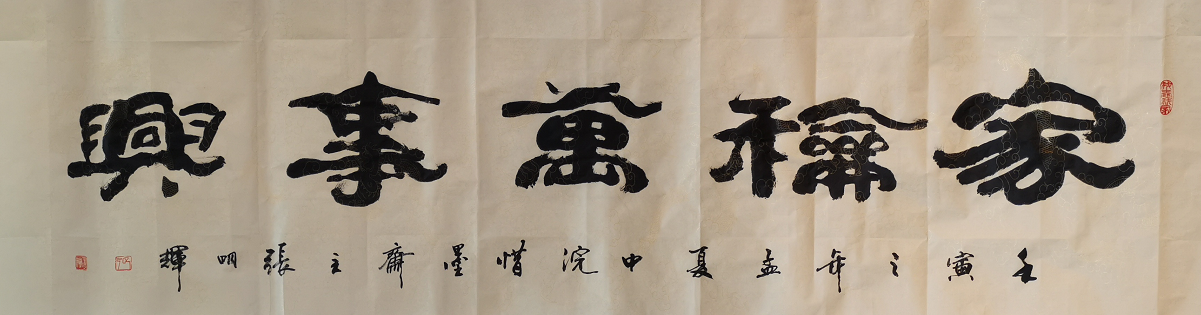 家龢萬事興
壬寅之年孟夏中浣惜墨齋主張明輝